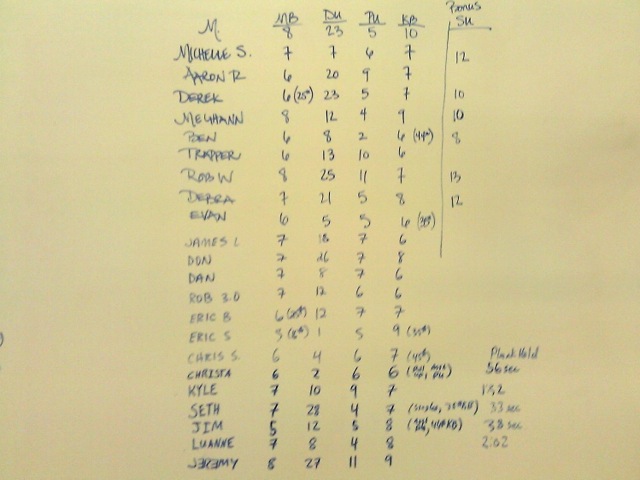 MB DU PU KB Bonus SU
M. 8 23 5 10
MICHELLE S. 7 7 6 7 12
AARON R 6 20 9 7
DEREK 6 (25#) 23 5 7 10
MEGHANN 8 12 4 9 10
BEN 6 8 2 6 (44#) 8
TRAPPER 6 13 10 6
ROB W 8 25 11 7 13
DEBRA 7 21 5 8 12
EVAN 6 5 5 6 (35#)
JAMES L 7 18 7 6
DON 7 26 7 8
DAN 7 8 7 6
ROB 3.0 7 12 6 6
ERIC B 6 (25#) 12 7 7
ERIC S 5 1 5 9 (35#)
CHRIS S. 6 4 6 7 (45#) Plank Hold
CHRISTA 6 2 6 6 56 sec
KYLE 7 10 9 7
SETH 7 28 4 7 33 sec
JIM 5 12 5 8 38 sec
LUANNE 7 8 4 8 2:02
JEREMY 8 27 11 9